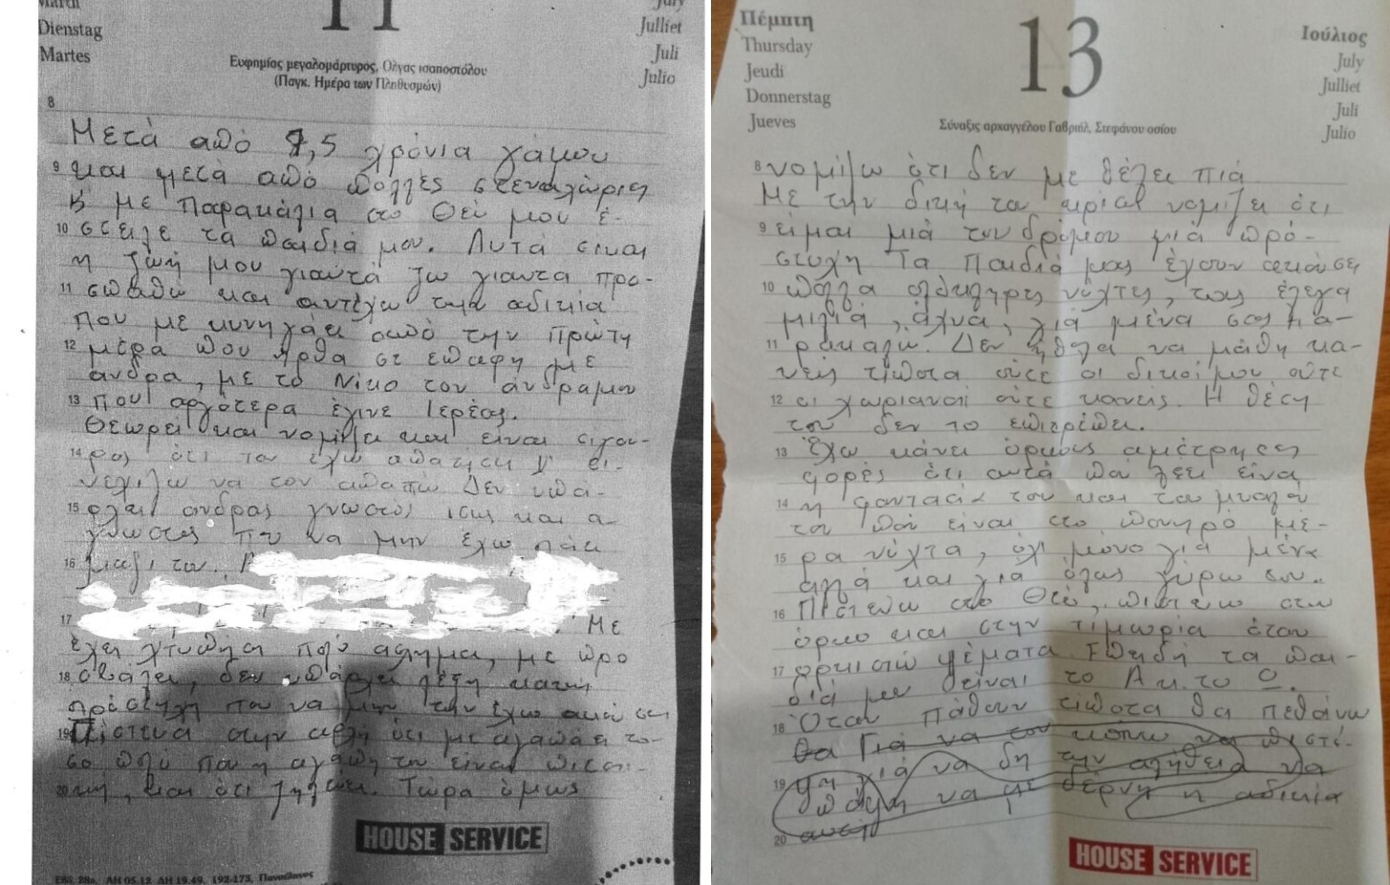 11
Dienstag
Martes
July
Julliet
Juli
Julio
Ευφημίας μεγαλομάρτυρος, Όλγας ισαποστόλου
(Παγκ. Ημέρα των Πληθυσμών)
8
Μετά από 9,5 χρόνια γάμου
9 και μετά από πολλές στεναχώριες
κ με παρακάλια στο Θεό μου έ-
10 στειλε τα παιδιά μου. Αυτά είναι
η ζωή μου γιαυτά ζω γιαυτα προ-
11 σπαθώ και αντέχω την αδικία
που με κυνηγάει από την πρώτη
12 μέρα που ήρθα σε επαφή με
άνδρα, με το Νίκο τον άνδραμου
13 που αργότερα έγινε Ιερέας.
Θεωρεί και νομίζει και είναι σιγου-
14 ρος ότι τον έχω απατήσει
να τον απατώ Δεν υπά-
15 ρχει άνδρας γνωστός και α-
γνωστος που να μην έχω πάει
16 μαζι του.
17 Με
έχει χτυπήσει πολύ άσχημα, με προ
18 σβάλει, δεν υπάρχει λέξη κακιά
που να μην την έχω ακούσει
19 Πίστευα στην αρχή ότι με αγαπάει το-
σο πολύ που η αγάπη του είναι
20 και ότι ζηλεύει. Τώρα όμως
HOUSE SERVICE
Πέμπτη
Thursday
Jeudi
Donnerstag
Jueves
13
Ιούλιος
July
Julliet
Juli
Julio
Σύναξις αρχαγγέλου Γαβριήλ, Στεφάνου οσίου
8 νομίζω ότι δεν με θέλει πιά
Με την δική του νομίζει ότι
9 είμαι μιά του δρόμου μιά πρό-
στυχη Τα παιδιά μας έχουν ακούσει
10 πολλά ολόκληρες νύχτες, τους έλεγα
μιλιά, άχνα, γιά μένα σας πα-
11 ρακαλώ. Δεν ήθελα να μάθη κα-
νείς τίποτα ούτε οι δικοί μου ούτε
12 οι χωριανοί ούτε κανείς. Η θέση
του δεν το επιτρέπει.
13 Έχω κάνει όρκους αμέτρητες
φορές ότι αυτά που λέει είναι
14 η φαντασία του και του μυαλού
του που είναι στο πονηρό μέ-
15 ρα νύχτα, όχι μόνο γιά μένα
αλλά και για όλους γύρω του..
16 Πιστεύω στο Θεό, πιστεύω στον
όρκο και στην τιμωρία όταν
17 ορκιστώ ψέματα Επειδή τα παι-
διά μου είναι το Α κ. το Ω.
18 Όταν πάθουν τίποτα θα πεθάνω
θα Γιά να τον κάνω να πιστέ-
19 ψη γιά να δη την αλήθεια να
πάψη να με δέρνη η αδικία
20 αυτή
HOUSE SERVICE